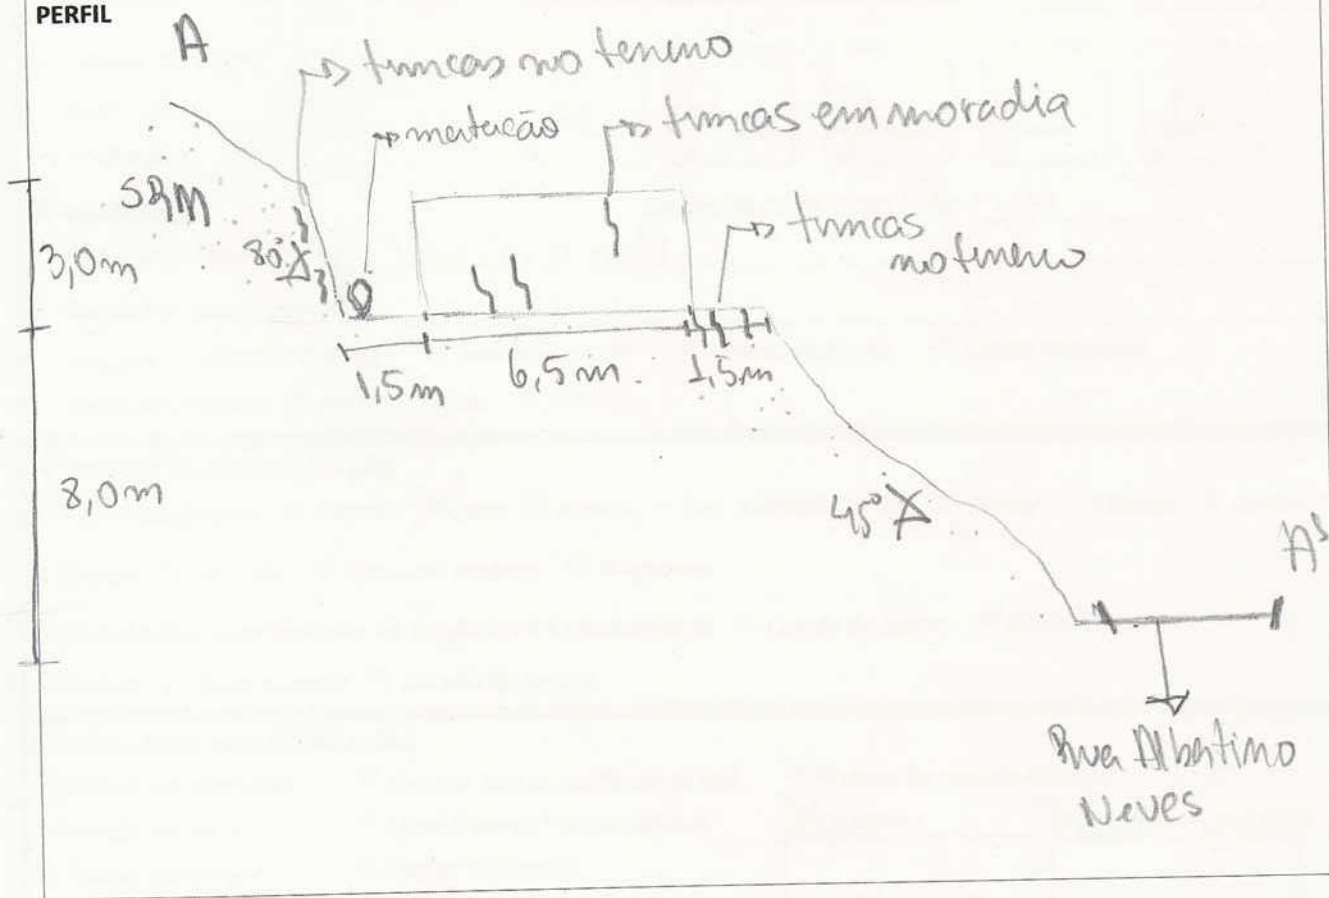 PERFIL
A
trincas no terreno
matacão
trincas em moradia
SRM
80°
3,0m
trincas
no terreno
1,5m
6,5m.
1,5m
8,0m
45°
A'
Rua Albertino
Neves